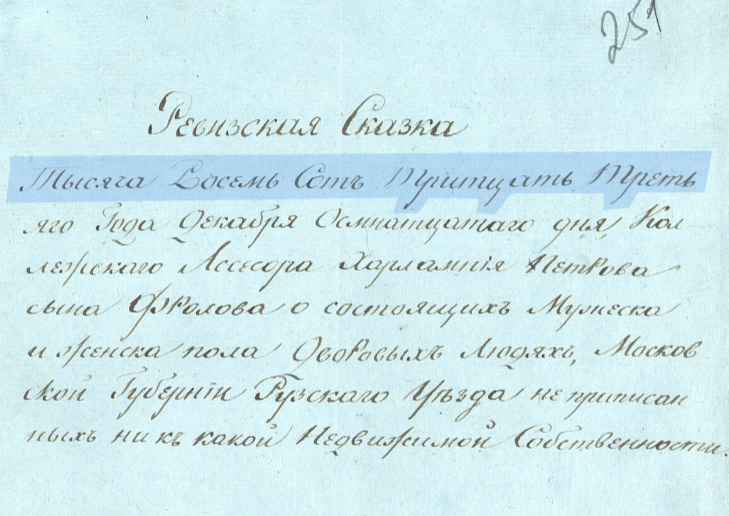 251
Ревизская Сказка
Тысяча Восемь Сотъ Тритцать Треть
яго Года Декабря Осмнатцатаго дня, Кол-
лежскаго Ассесора Харлампія Петрова
сына Фролова о состоящихъ Мужеска
и женска пола Дворовыхъ Людяхъ, Москов
ской Губерніи Рузскаго Уѣзда не приписан
ныхъ ни къ какой Недвижимой Собственности.